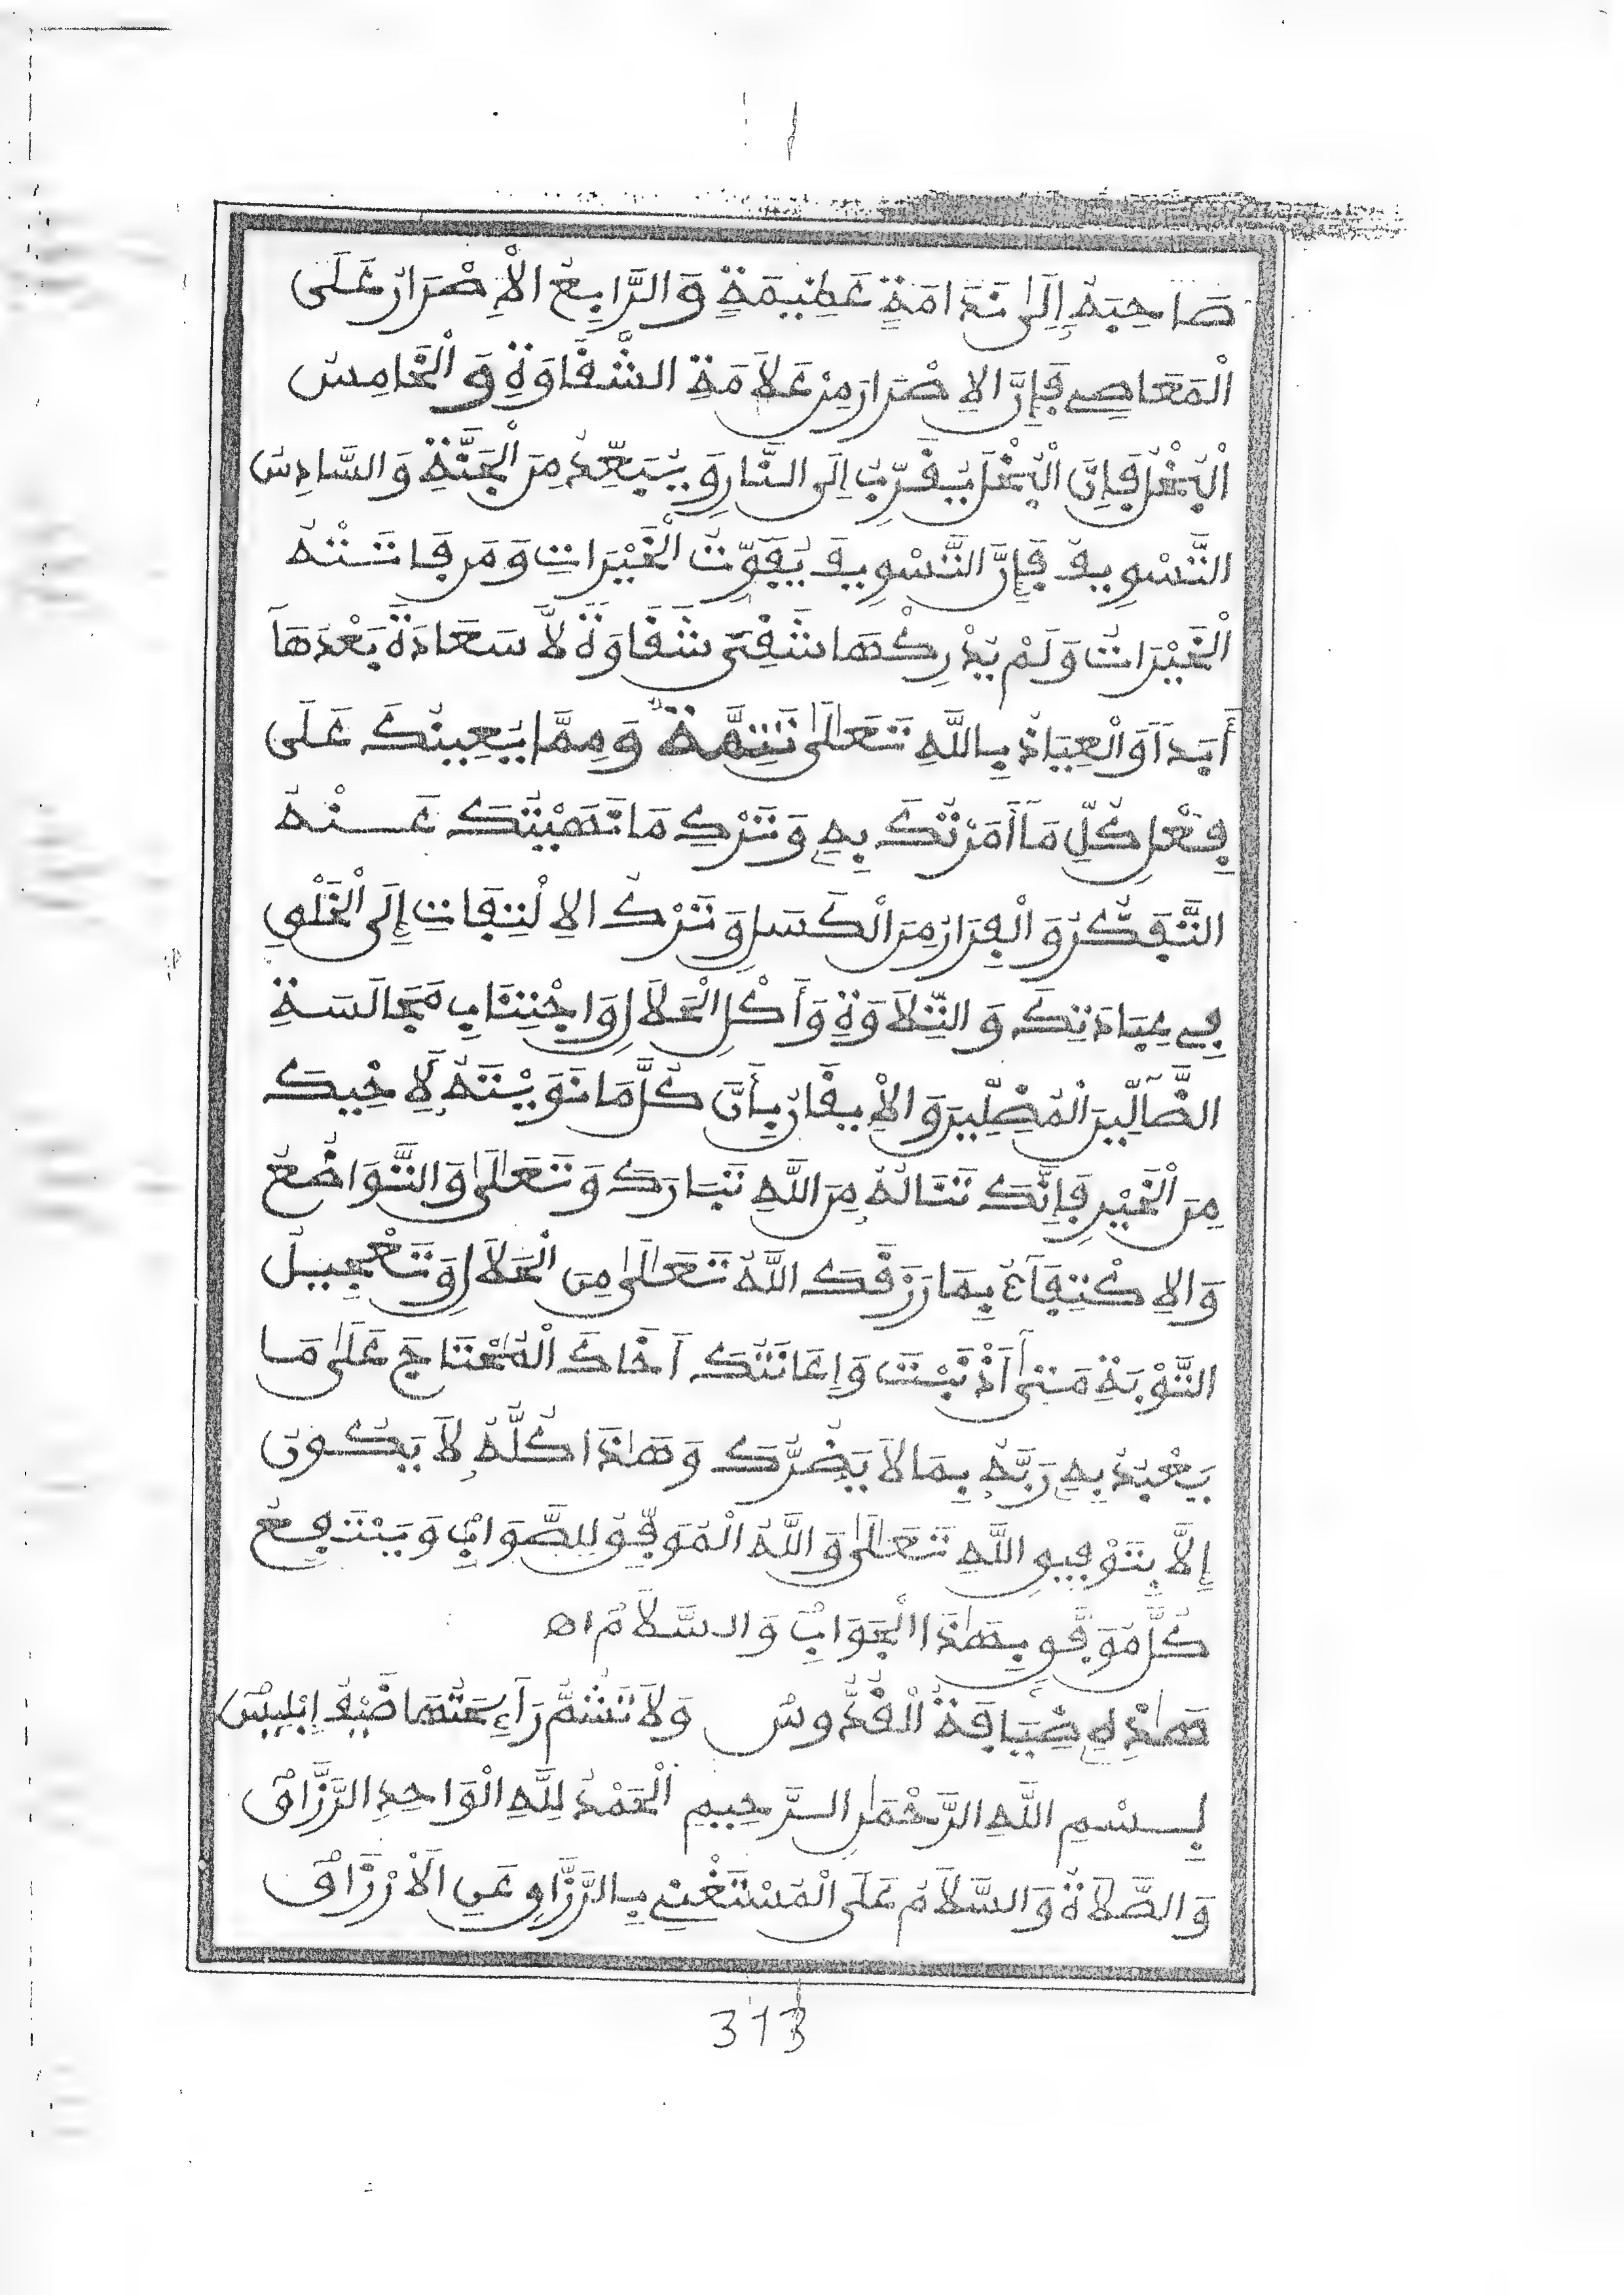 صَاحِبَهُ إِلَىٰ نَدَامَةٍ عَظِيمَةٍ وَالرَّابِعُ الْإِصْرَارُ عَلَى
الْمَعَاصِي فَإِنَّ الِاصْرَارَ مِنْ عَلَامَةِ الشَّقَاوَةِ وَالْخَامِسُ
الْبُخْلُ فَإِنَّ الْبُخْلَ يُقَرِّبُ إِلَى النَّارِ وَيُبَعِّدُ مِنَ الْجَنَّةِ وَالسَّادِسُ
التَّسْوِيفُ فَإِنَّ التَّسْوِيفَ يُفَوِّتُ الْخَيْرَاتِ وَمَن فَاتَتْهُ
الْخَيْرَاتُ وَلَمْ يُدْرِكْهَا شَقِيَ شَقَاوَةً لَّا سَعَادَةَ بَعْدَهَآ
أَبَدًا وَالْعِيَاذُ بِاللَّهِ تَعَالَىٰ تَتِمَّةٌ وَمِمَّا يُعِينُكَ عَلَى
فِعْلِ كُلِّ مَآ أَمَرْتُكَ بِهِ وَتَرْكِ مَا نَهَيْتُكَ عَنْهُ
التَّفَكُّرُ وَالْفِرَارُ مِنَ الْكَسَلِ وَتَرْكُ الِالْتِفَاتِ إِلَى الْخَلْقِ
فِي عِبَادَتِكَ وَالتِّلَاوَةِ وَأَكْلِ الْحَلَالِ وَاجْتِنَابِ مُجَالَسَةِ
الضَّآلِّينَ الْمُضِلِّينَ وَالْإِيقَانُ بِأَنَّ كُلَّ مَا نَوَيْتَهُ لِأَخِيكَ
مِنَ الْخَيْرِ فَإِنَّكَ تَنَالُهُ مِنَ اللَّهِ تَبَارَكَ وَتَعَالَىٰ وَالتَّوَاضُعُ
وَالِاكْتِفَآءُ بِمَا رَزَقَكَ اللَّهُ تَعَالَىٰ مِنَ الْحَلَالِ وَتَعْجِيلُ
التَّوْبَةِ مَتَىٰ أَذْنَبْتَ وَإِعَانَتُكَ أَخَاكَ الْمُحْتَاجَ عَلَىٰ مَا
يَعْبُدُ بِهِ رَبَّهُ بِمَا لَا يَضُرُّكَ وَهَٰذَا كُلُّهُ لَا يَكُونُ
إِلَّا بِتَوْفِيقِ اللَّهِ تَعَالَىٰ وَاللَّهُ الْمُوَفِّقُ لِلصَّوَابِ وَيَنْتَفِعُ
كُلُّ مُوَفَّقٍ بِهَٰذَا الْجَوَابِ وَالسَّلَامُ اه
هَٰذِهِ ضِيَافَةُ الْقُدُّوسِ وَلَا تَشُمُّ رَآئِحَتَهَا ضَيْفُ إِبْلِيسَ
بِسْمِ اللَّهِ الرَّحْمَٰنِ الرَّحِيمِ الْحَمْدُ لِلَّهِ الْوَاحِدِ الرَّزَّاقِ
وَالصَّلَاةُ وَالسَّلَامُ عَلَى الْمُسْتَغْنِي بِالرَّزَّاقِ عَنِ الْأَرْزَاقِ
313